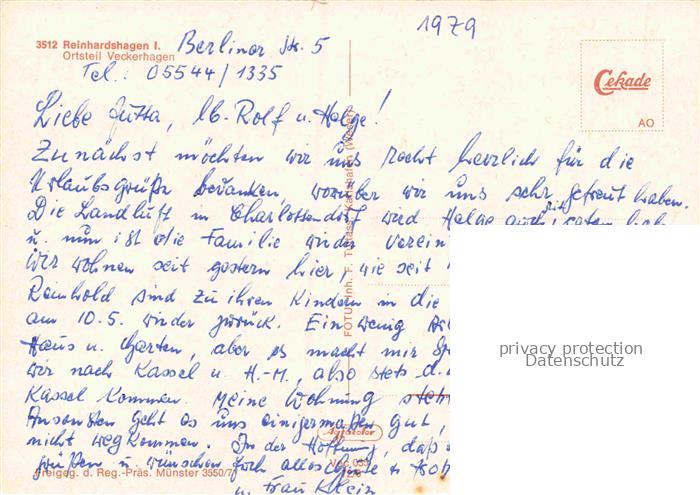 1979
3512 Reinhardshagen I.
Ortsteil Veckerhagen
Berliner Str. 5
Tel.: 05544/1335
Cekade
AO
Liebe Jutta, lb. Rolf u. Helge!
Zunächst möchten wir uns recht herzlich für die
Urlaubsgrüße bedanken, worüber wir uns sehr gefreut haben.
Die Landluft in Charlottendorf wird Helge auch gut getan haben
u. nun ist die Familie wieder verein
Wir wohnen seit gestern hier, wie seit
Reinhold sind zu ihren Kindern in die
am 10.5. wieder zurück. Ein wenig
Haus u. Garten, aber es macht mir
wir nach Kassel u. H.-M., also stets d.
Kassel kommen. Meine Wohnung
Ansonsten geht es uns einigermaßen gut,
nicht wegkommen. In der Hoffnung, daß
grüßen u. wünschen
u. Frau Klein
privacy protection
Datenschutz
Agfacolor
Freigeg. d. Reg.-Präs. Münster 3550/7